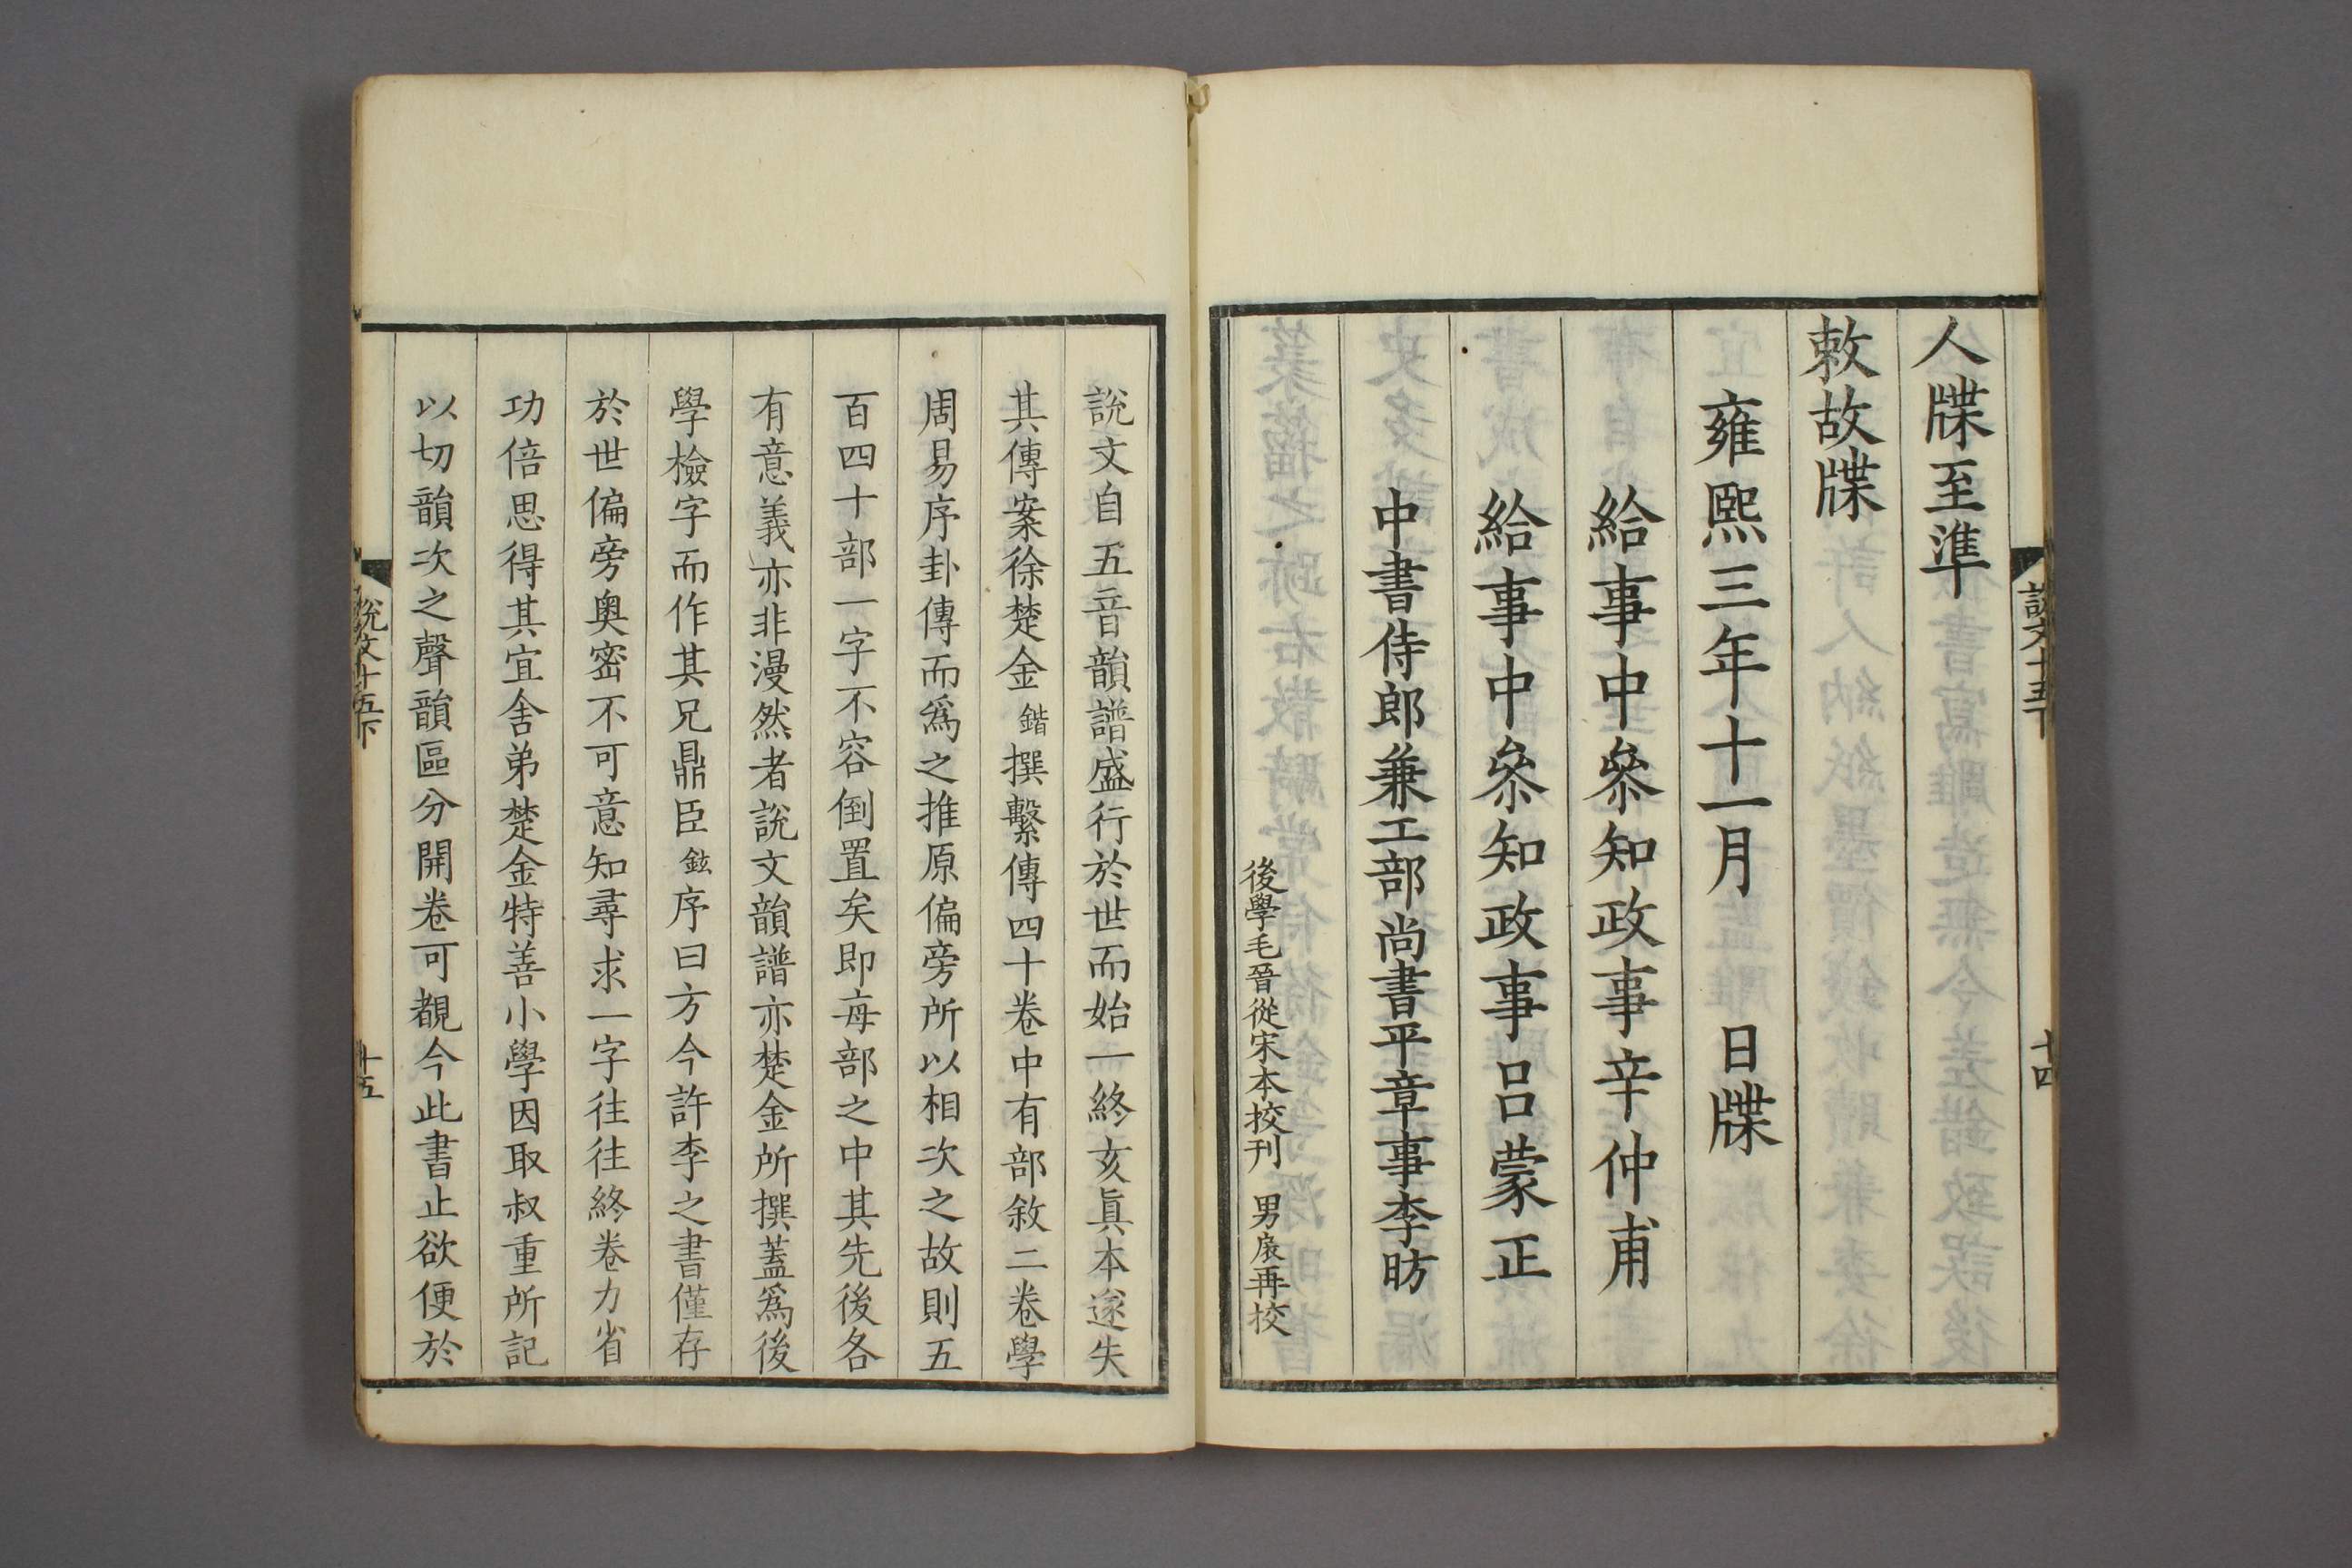 人牒至準
敕故牒
雍熙三年十一月 日牒
給事中參知政事辛仲甫
給事中參知政事呂蒙正
中書侍郎兼工部尚書平章事李昉
後學毛晉從宋本挍刊 男扆再挍
說文十五下 十四
說文自五音韻譜盛行於世而始一終亥眞本遂失
其傳案徐楚金鍇撰繫傳四十卷中有部敘二卷學
周易序卦傳而爲之推原偏旁所以相次之故則五
百四十部一字不容倒置矣即每部之中其先後各
有意義亦非漫然者說文韻譜亦楚金所撰蓋爲後
學檢字而作其兄鼎臣鉉序曰方今許李之書僅存
於世偏旁奧密不可意知尋求一字往往終卷力省
功倍思得其宜舍弟楚金特善小學因取叔重所記
以切韻次之聲韻區分開卷可覩今此書止欲便於
說文十五下 十五